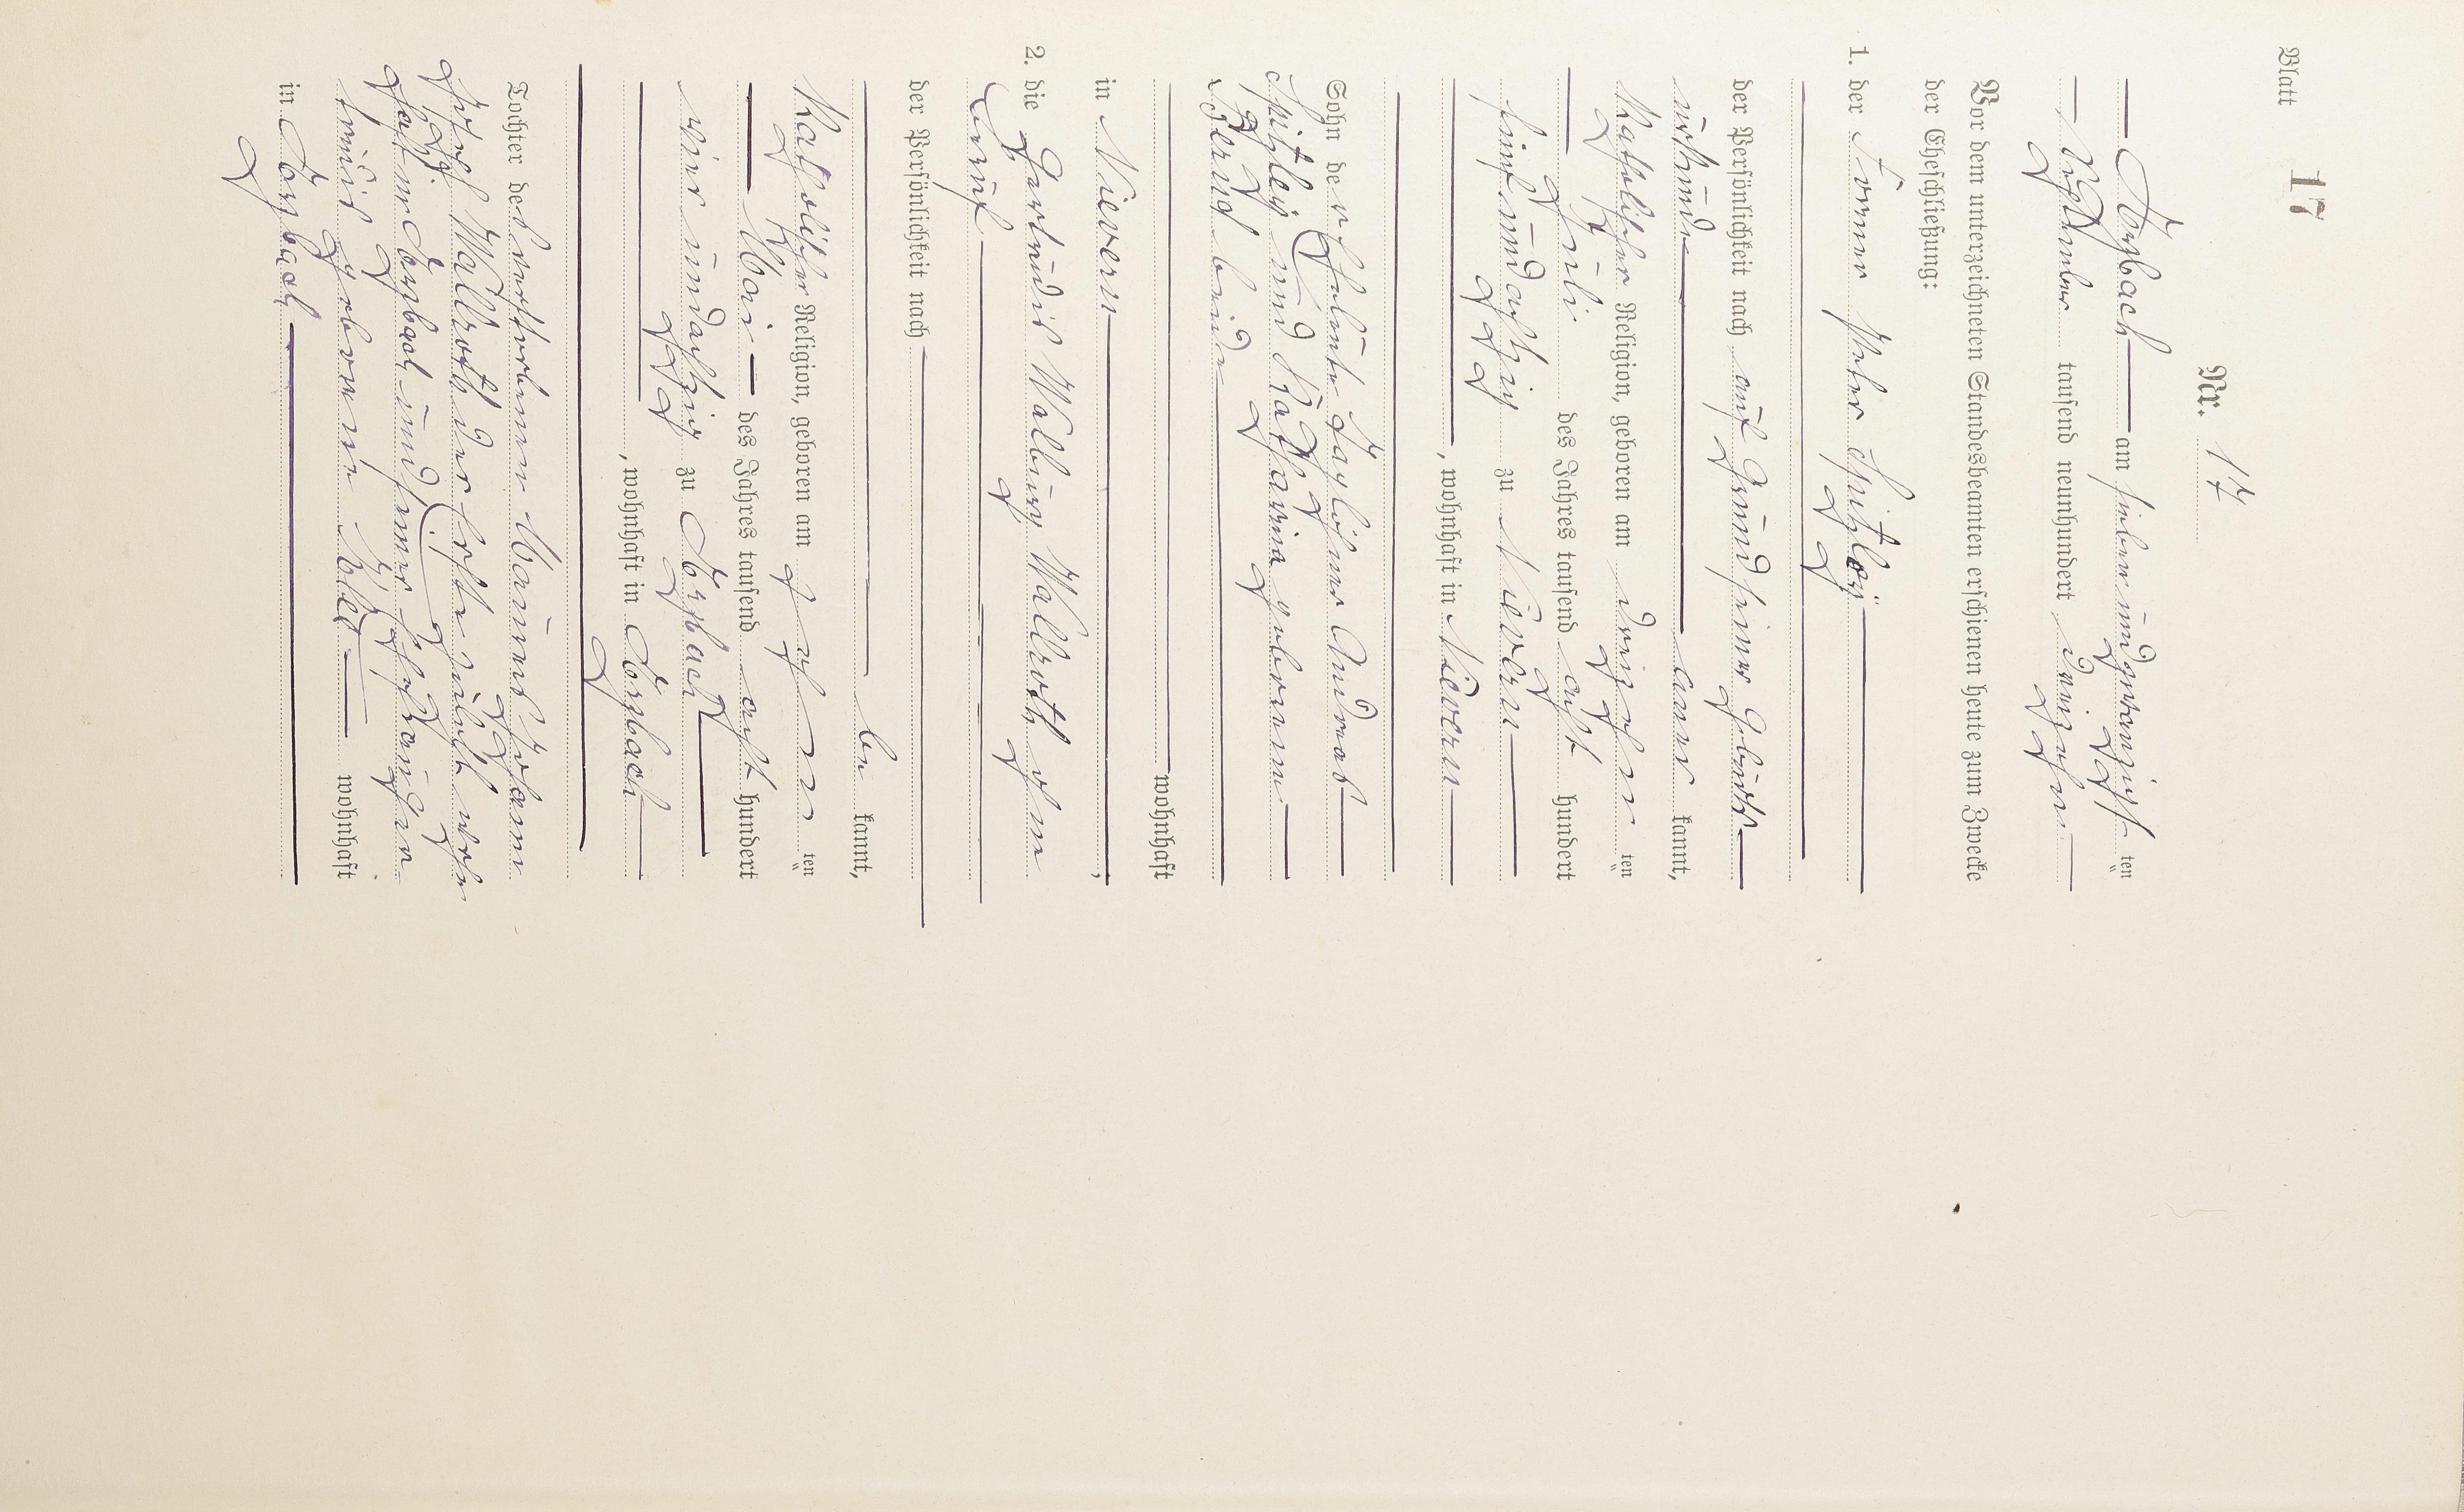 Blatt 17
Nr. 17
Dörsbach am sieben und zwanzigsten
September tausend neunhundert dreizehn
Vor dem unterzeichneten Standesbeamten erschienen heute zum Zwecke
der Eheschließung:
1. der Former Peter Spitzley
der Persönlichkeit nach auf Grund seiner Geburts
urkunde aner kannt,
katholischer Religion, geboren am dreizehn ten
Juli des Jahres tausend acht hundert
fünf und achtzig zu Nievern
, wohnhaft in Nievern
Sohn der Eheleute Taglöhner Andreas
Spitzley und Katharina geborene
Bernd beide
wohnhaft
in Nievern,
2. die Gertrudis Walburg Wallroth ohne
Beruf
der Persönlichkeit nach
be kannt,
katholischer Religion, geboren am zehn ten
Mai des Jahres tausend acht hundert
vier und achtzig zu
, wohnhaft in
Tochter des verstorbenen Johann
Josef Wallroth der
haft in und seiner Ehefrau
geborene wohnhaft
in